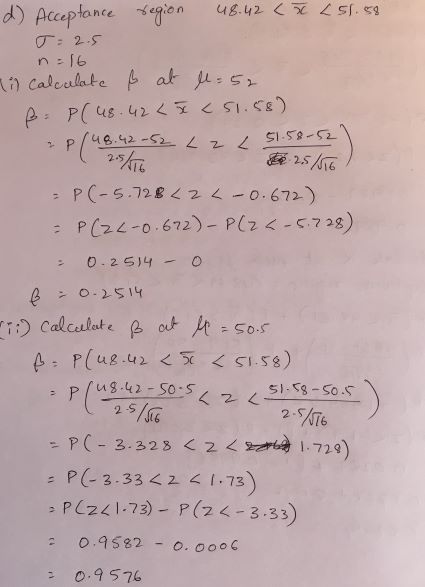 d) Acceptance region 48.42 < x̄ < 51.58
σ = 2.5
n = 16
(i) Calculate β at μ = 52
β = P(48.42 < x̄ < 51.58)
= P((48.42-52)/(2.5/√16) < z < (51.58-52)/(2.5/√16))
= P(-5.728 < z < -0.672)
= P(z < -0.672) - P(z < -5.728)
= 0.2514 - 0
β = 0.2514
(ii) Calculate β at μ = 50.5
β = P(48.42 < x̄ < 51.58)
= P((48.42-50.5)/(2.5/√16) < z < (51.58-50.5)/(2.5/√16))
= P(-3.328 < z < 1.728)
= P(-3.33 < z < 1.73)
= P(z < 1.73) - P(z < -3.33)
= 0.9582 - 0.0006
= 0.9576